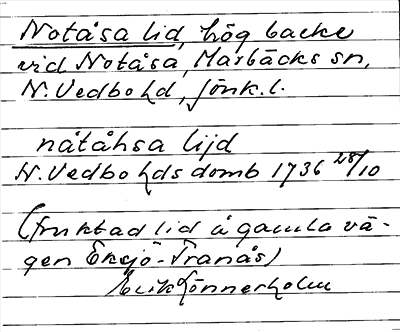 Notåsa lid, hög backe
vid Notåsa, Marbäcks sn,
N. Vedbo hd, Jönk. l.
nåtåhsa lijd
N. Vedbo hds domb 1736 28/10
(fruktad lid å gamla vä-
gen Eksjö-Tranås)
Erik Lönnerholm